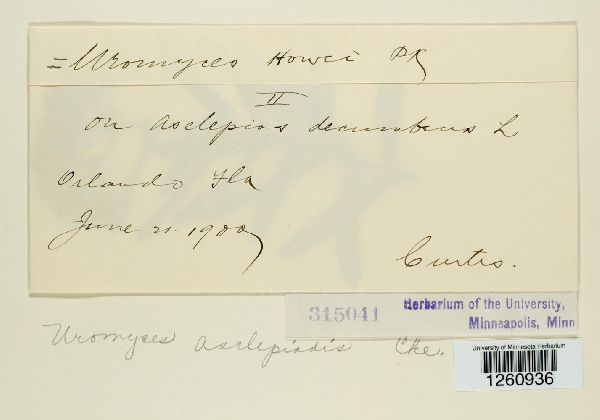 = Uromyces Howei Pk
II
on Asclepias decumbens L
Orlando Fla
June 21. 1900
Curtis.
315041 Herbarium of the University,
Minneapolis, Minn
Uromyces asclepiadis Cke.
University of Minnesota Herbarium
1260936